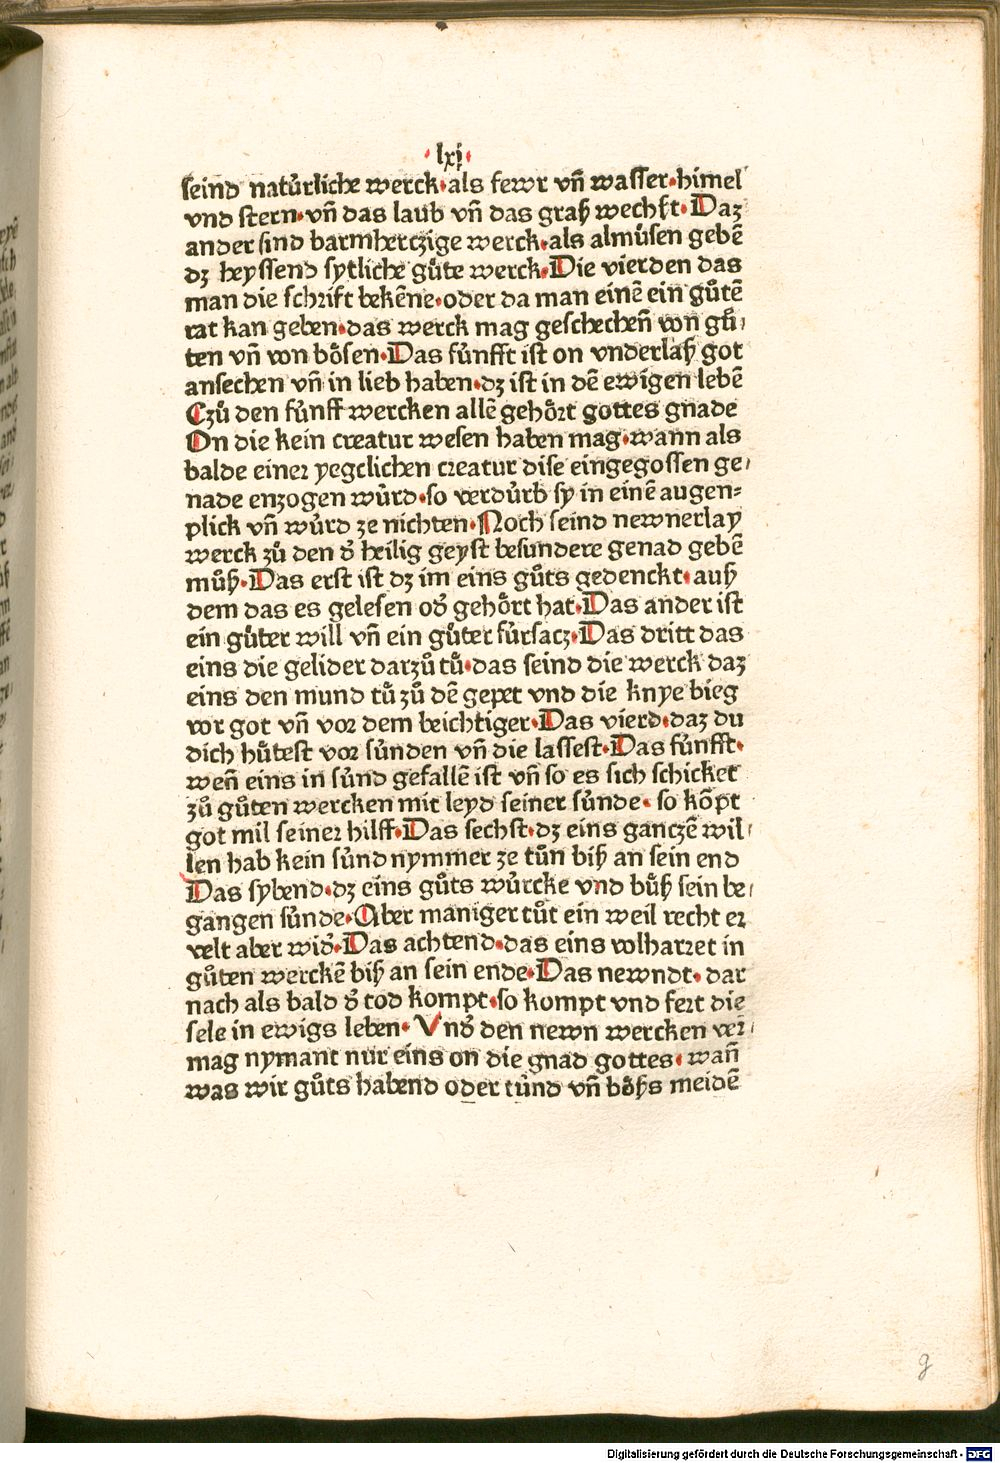 ·lxj·
seind natůrliche werck·als fewr vñ wasser·himel
vnd stern·vñ das laub vñ das graß wechßt·Daz
ander sind barmherczige werck·als almůsen gebē
dz heyssend sytliche gůte werck·Die vierden das
man die schrift bekēne·oder da man einē ein gůtē
rat kan geben·das werck mag geschecheñ von gů⸗
ten vñ von bősen·Das fůnfft ist on vnderlaß got
ansechen vñ in lieb haben·dz ist in dē ewigen lebē
Czů den fůnff wercken allē gehőrt gottes gnade
On die kein creatur wesen haben mag·wann als
balde einer yegclichen creatur dise eingegossen ge⸗
nade enzogen wůrd·so verdůrb sy in einē augen⸗
plick vñ wůrd ze nichten·Noch seind newnerlay
werck zů den d̾ heilig geyst besundere genad gebē
můß·Das erst ist dz im eins gůts gedenckt·auß
dem das es gelesen od̾ gehőrt hat·Das ander ist
ein gůter will vñ ein gůter fůrsacz·Das dritt das
eins die gelider darzů tů·das seind die werck daz
eins den mund tů zů dē gepet vnd die knye bieg
vor got vñ vor dem beichtiger·Das vierd·daz du
dich hůtest vor sůnden vñ die lassest·Das fůnfft·
weñ eins in sůnd gefallē ist vñ so es sich schicket
zů gůten wercken mit leyd seiner sůnde·so kōpt
got mil seiner hilff·Das sechst·dz eins ganczē wil⸗
len hab kein sůnd nymmer ze tůn biß an sein end
Das sybend·dz eins gůts wůrcke vnd bůß sein be⸗
gangen sůnde·Aber maniger tůt ein weil recht er
velt aber wid̾·Das achtend·das eins volharret in
gůten werckē biß an sein ende·Das newndt·dar
nach als bald d̾ tod kompt·so kompt vnd fert die
sele in ewigs leben·Vnd̾ den newn wercken ver⸗
mag nymant nur eins on die gnad gottes·wañ
was wir gůts habend oder tůnd vñ bőßs meidē
g
Digitalisierung gefördert durch die Deutsche Forschungsgemeinschaft - DFG